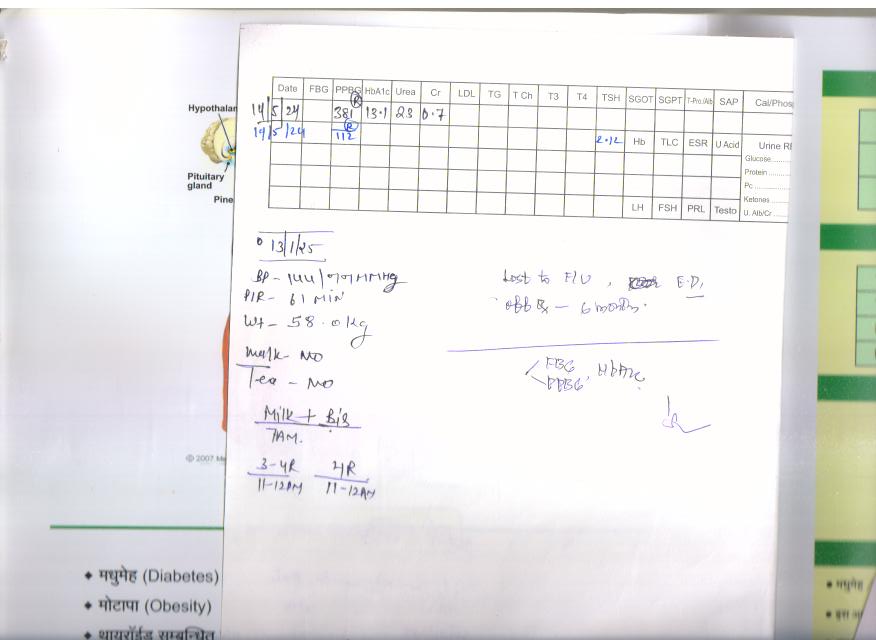 Date FBG PPBG HbA1c Urea Cr LDL TG T Ch T3 T4 TSH SGOT SGPT T-Pro./Alb SAP Cal/Phos
14/5/24 381 (R) 13.1 23 0.7
14/5/24 112 (R) 2.12 Hb TLC ESR U Acid Urine RE
Glucose
Protein
Pc
Ketones
LH FSH PRL Testo U. Alb/Cr
Hypothalam
Pituitary
gland
Pine
13/1/25
BP - 144/77 MMHg
P/R - 61 MIN
Wt - 58.0 Kg
Walk - NO
Tea - NO
Milk + Bis
7AM.
3-4R 4R
11-12AM 11-12AM
Lost to F/U, E.D,
off Rx - 6 months.
FBG HbA1c
PPBG
© 2007
मधुमेह (Diabetes)
मोटापा (Obesity)
थायरॉईड सम्बन्धित
मधुमेह